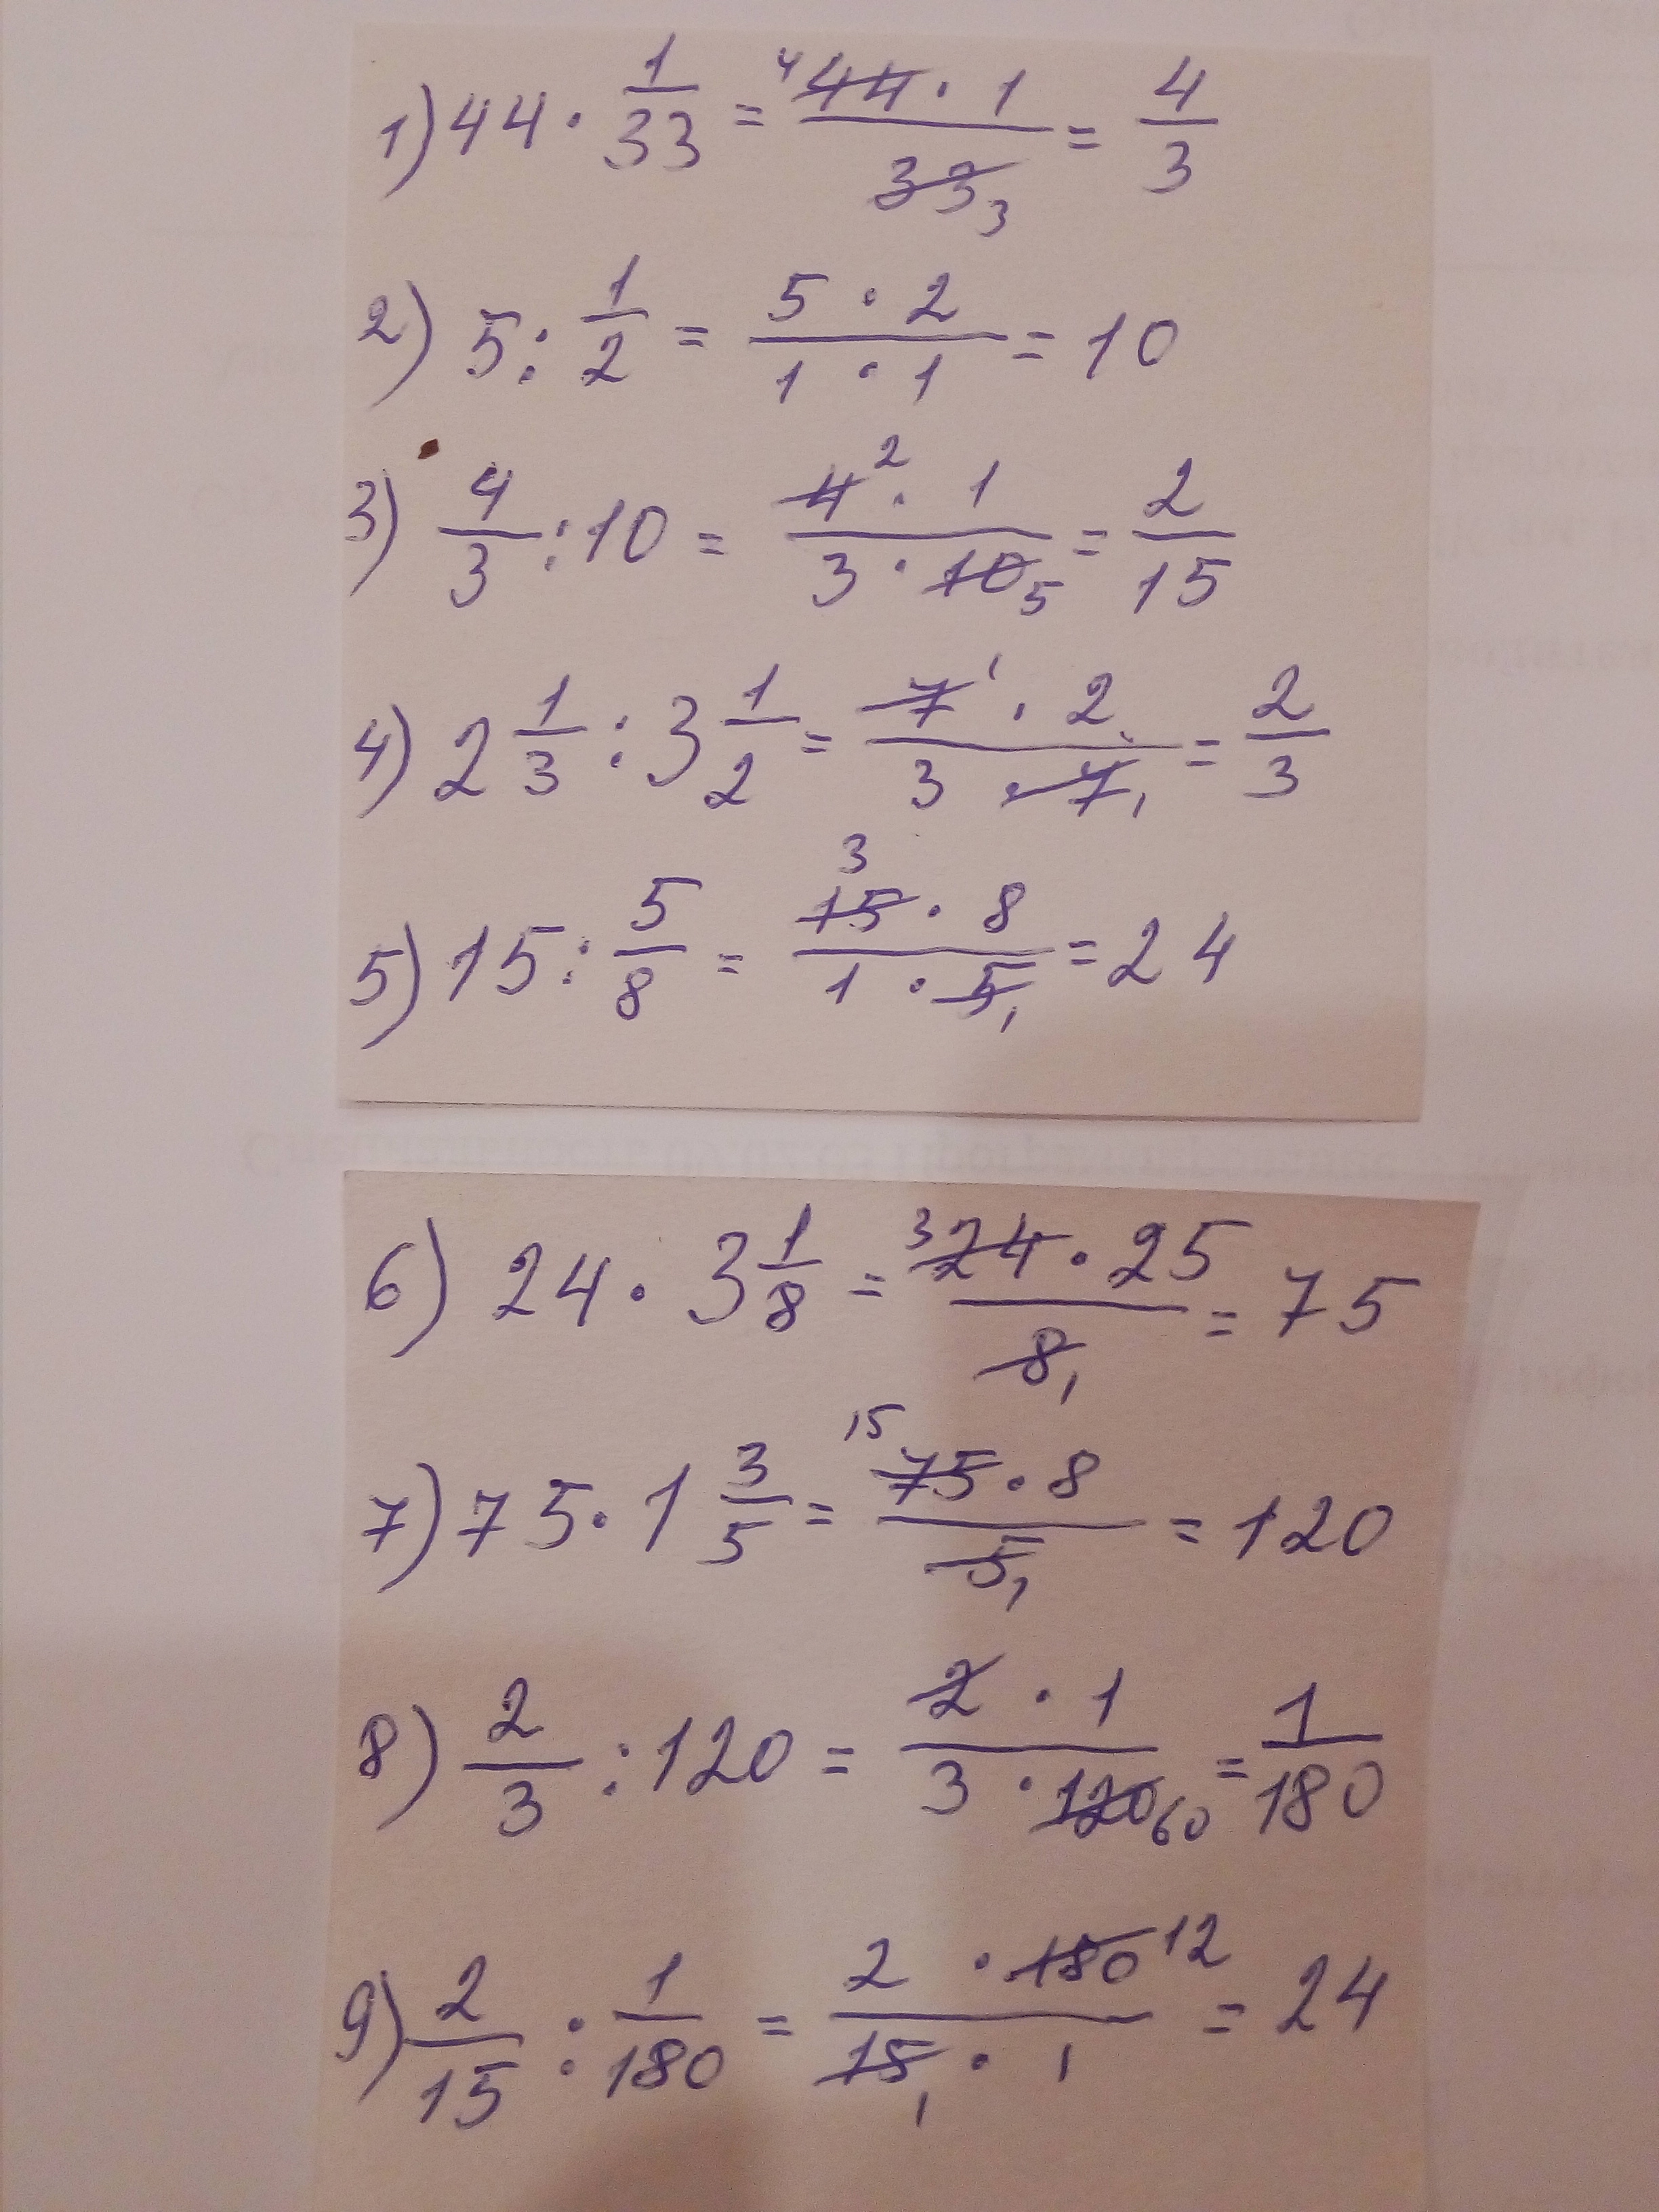 1) 44 · 1/33 = 44 4 · 1 / 33 3 = 4/3
2) 5 : 1/2 = 5 · 2 / 1 · 1 = 10
3) 4/3 : 10 = 4 2 · 1 / 3 · 10 5 = 2/15
4) 2 1/3 : 3 1/2 = 7 1 · 2 / 3 · 7 1 = 2/3
5) 15 : 5/8 = 15 3 · 8 / 1 · 5 1 = 24
6) 24 · 3 1/8 = 3 24 · 25 / 8 1 = 75
7) 75 · 1 3/5 = 15 75 · 8 / 5 1 = 120
8) 2/3 : 120 = 2 · 1 / 3 · 120 60 = 1/180
9) 2/15 : 1/180 = 2 · 180 12 / 15 1 · 1 = 24